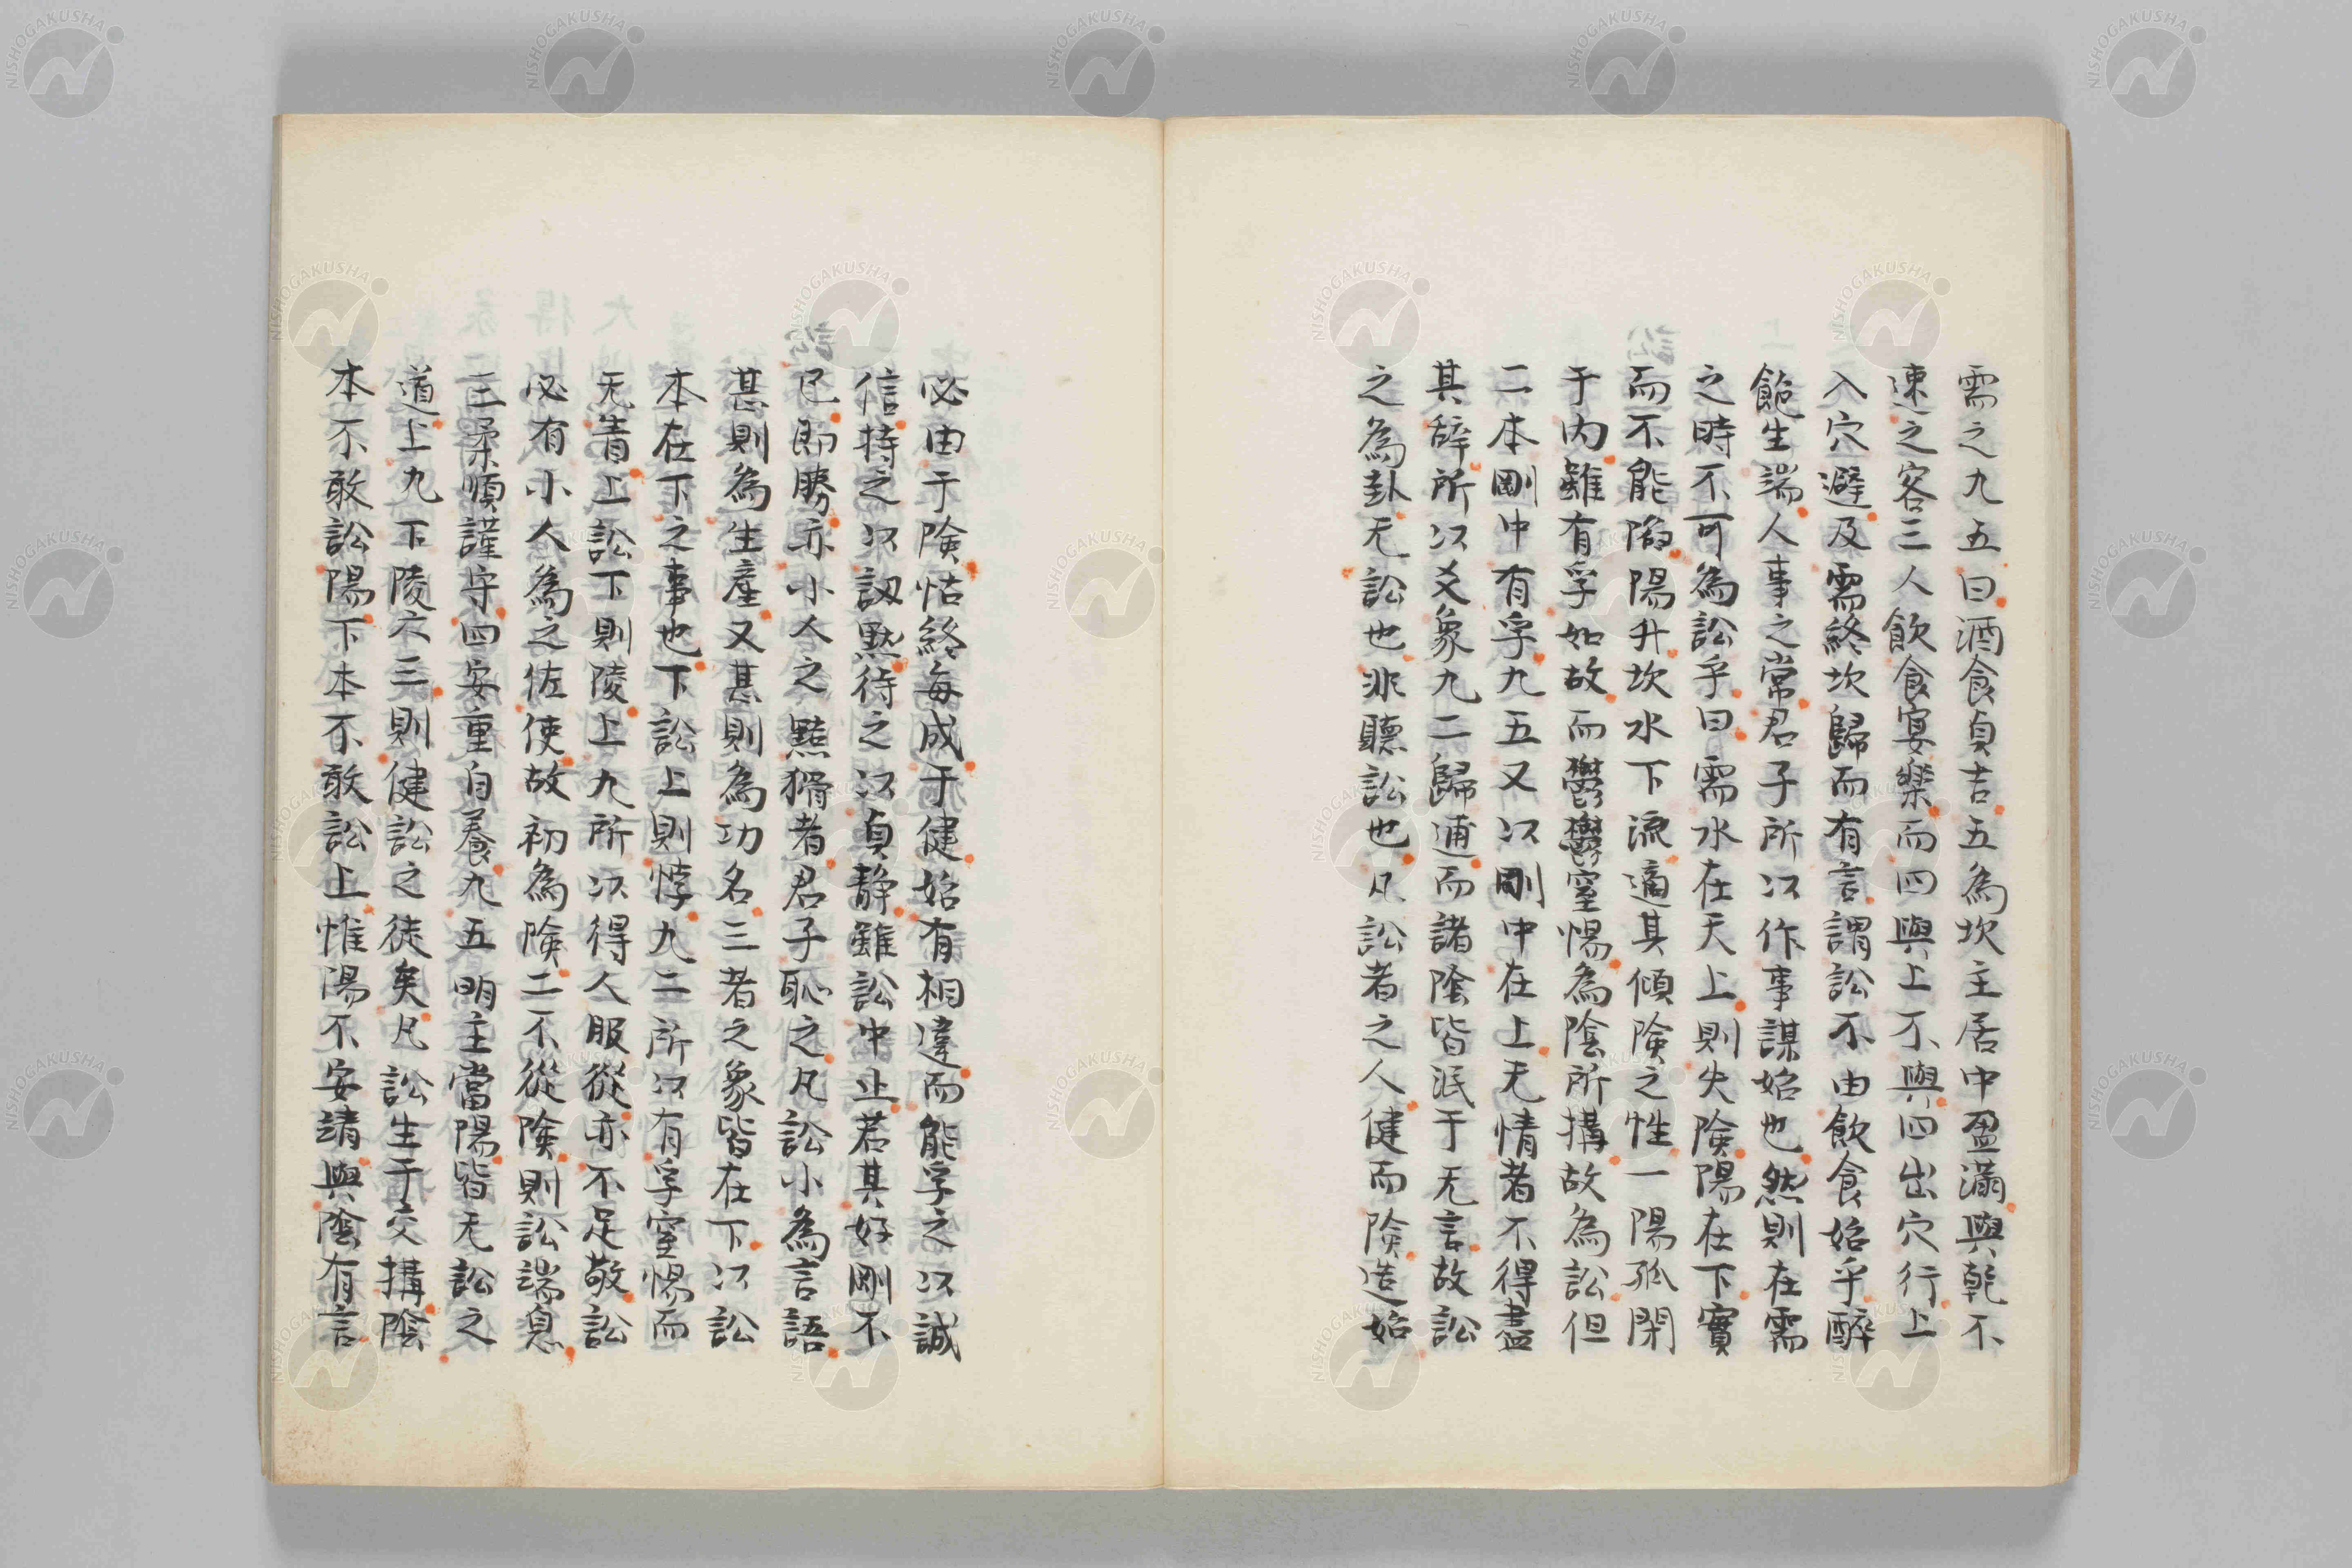 需之九五曰酒食貞吉五為坎主居中盈滿與乾不
速之客三人飲食宴樂而四與上不與四出穴行上
入穴避及需終坎歸而有言謂訟不由飲食始乎醉
飽生端人事之常君子所以作事謀始也然則在需
之時不可為訟乎曰需水在天上則失険陽在下實
而不能陷陽升坎水下流適其傾険之性一陽孤閉
于内雖有孚如故而鬱鬱窒惕為陰所搆故為訟但
二本剛中有孚九五又以剛中在上无情者不得盡
其辞所以爻象九二歸逋而諸陰皆泯于无言故訟
之為卦无訟也非聽訟也凡訟者之人健而険造始
必由于険怙終每成于健始有相違而能孚之以誠
信持之以訒黙待之以貞静雖訟中止若其好剛不
已即勝亦小人之黠猾者君子恥之凡訟小為言語
甚則為生産又甚則為功名三者之象皆在下以訟
本在下之事也下訟上則悖九二所以有孚窒惕而
无眚上訟下則陵上九所以得人服從亦不足敬訟
必有小人為之佐使故初為険二不從険則訟端息
三柔順謹守四安重自養九五明主當陽皆无訟之
道上九下陵六三則健訟之徒矣凡訟生于交搆陰
本不敢訟陽下本不敢訟上惟陽不安靖與陰有言
NISHOGAKUSHA